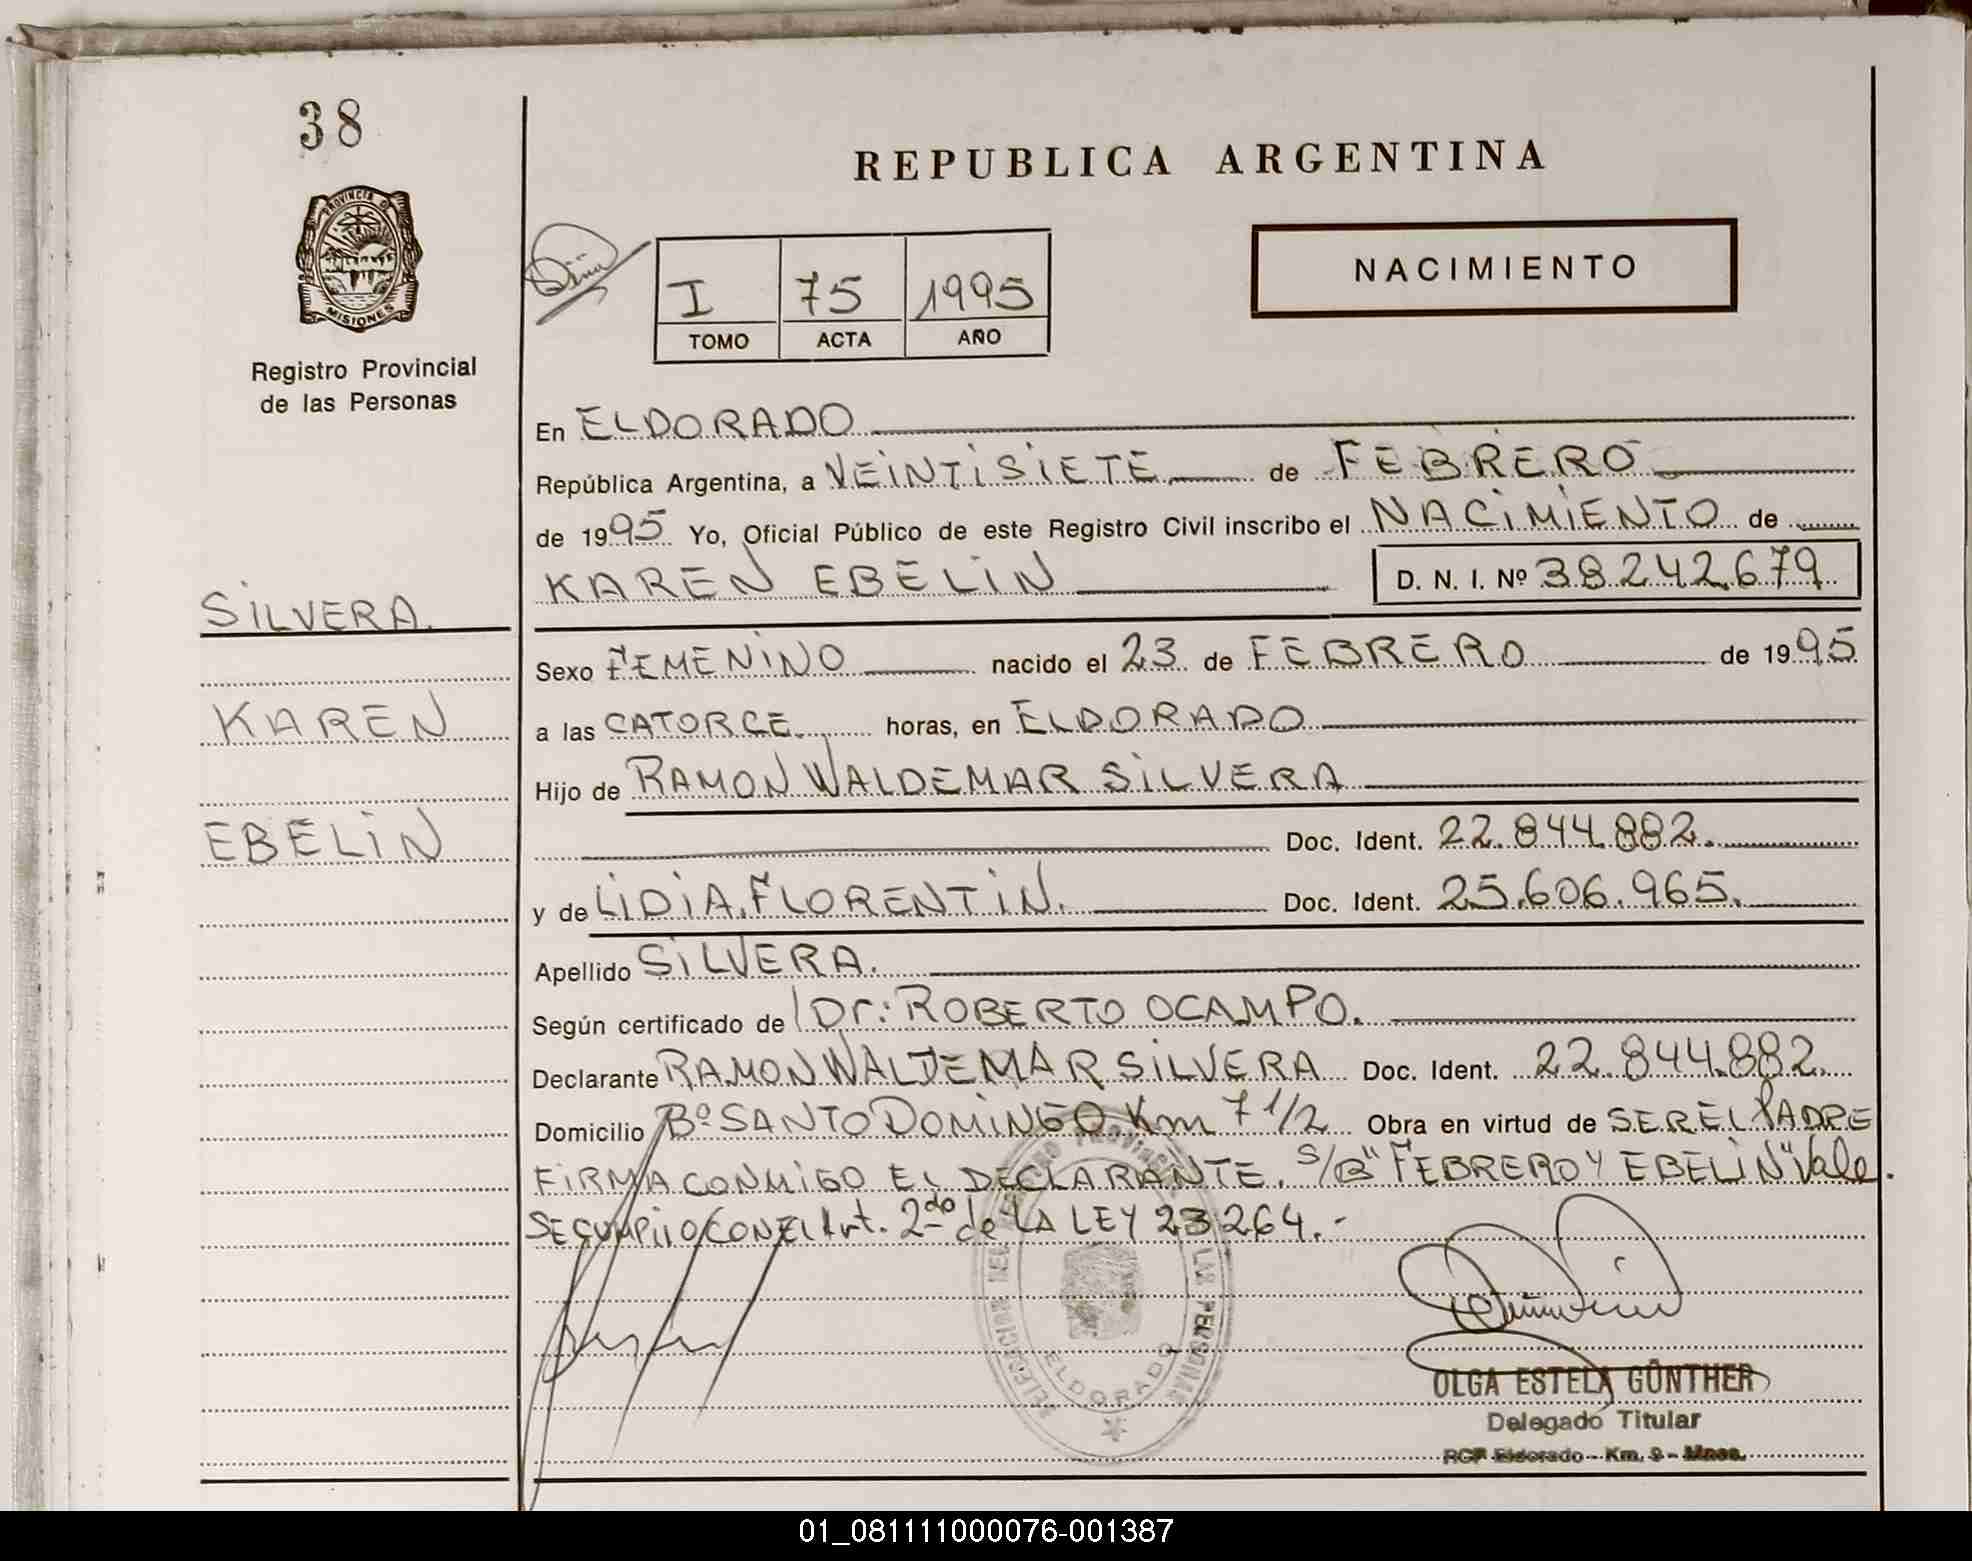 38
REPUBLICA ARGENTINA
PROVINCIA DE
MISIONES
I 75 1995
TOMO ACTA AÑO
NACIMIENTO
Registro Provincial
de las Personas
En ELDORADO
República Argentina, a VEINTISIETE de FEBRERO
de 1995 Yo, Oficial Público de este Registro Civil inscribo el NACIMIENTO de
KAREN EBELIN D. N. I. Nº 38242679
SILVERA.
Sexo FEMENINO nacido el 23 de FEBRERO de 1995
KAREN
a las CATORCE. horas, en ELDORADO
Hijo de RAMON WALDEMAR SILVERA
EBELIN
Doc. Ident. 22.844.882.
y de LIDIA FLORENTIN. Doc. Ident. 25.606.965.
Apellido SILVERA.
Según certificado de Dr: ROBERTO OCAMPO.
Declarante RAMON WALDEMAR SILVERA Doc. Ident. 22.844.882.
Domicilio Bº SANTO DOMINGO Km 7 1/2 Obra en virtud de SER EL PADRE
FIRMA CONMIGO EL DECLARANTE. S/B "FEBRERO Y EBELIN" Vale.
SE CUMPLIO CON EL Art. 2do de LA LEY 23264.-
ELDORADO
OLGA ESTELA GÜNTHER
Delegado Titular
RCP Eldorado - Km. 9 - Mnes.
01_081111000076-001387